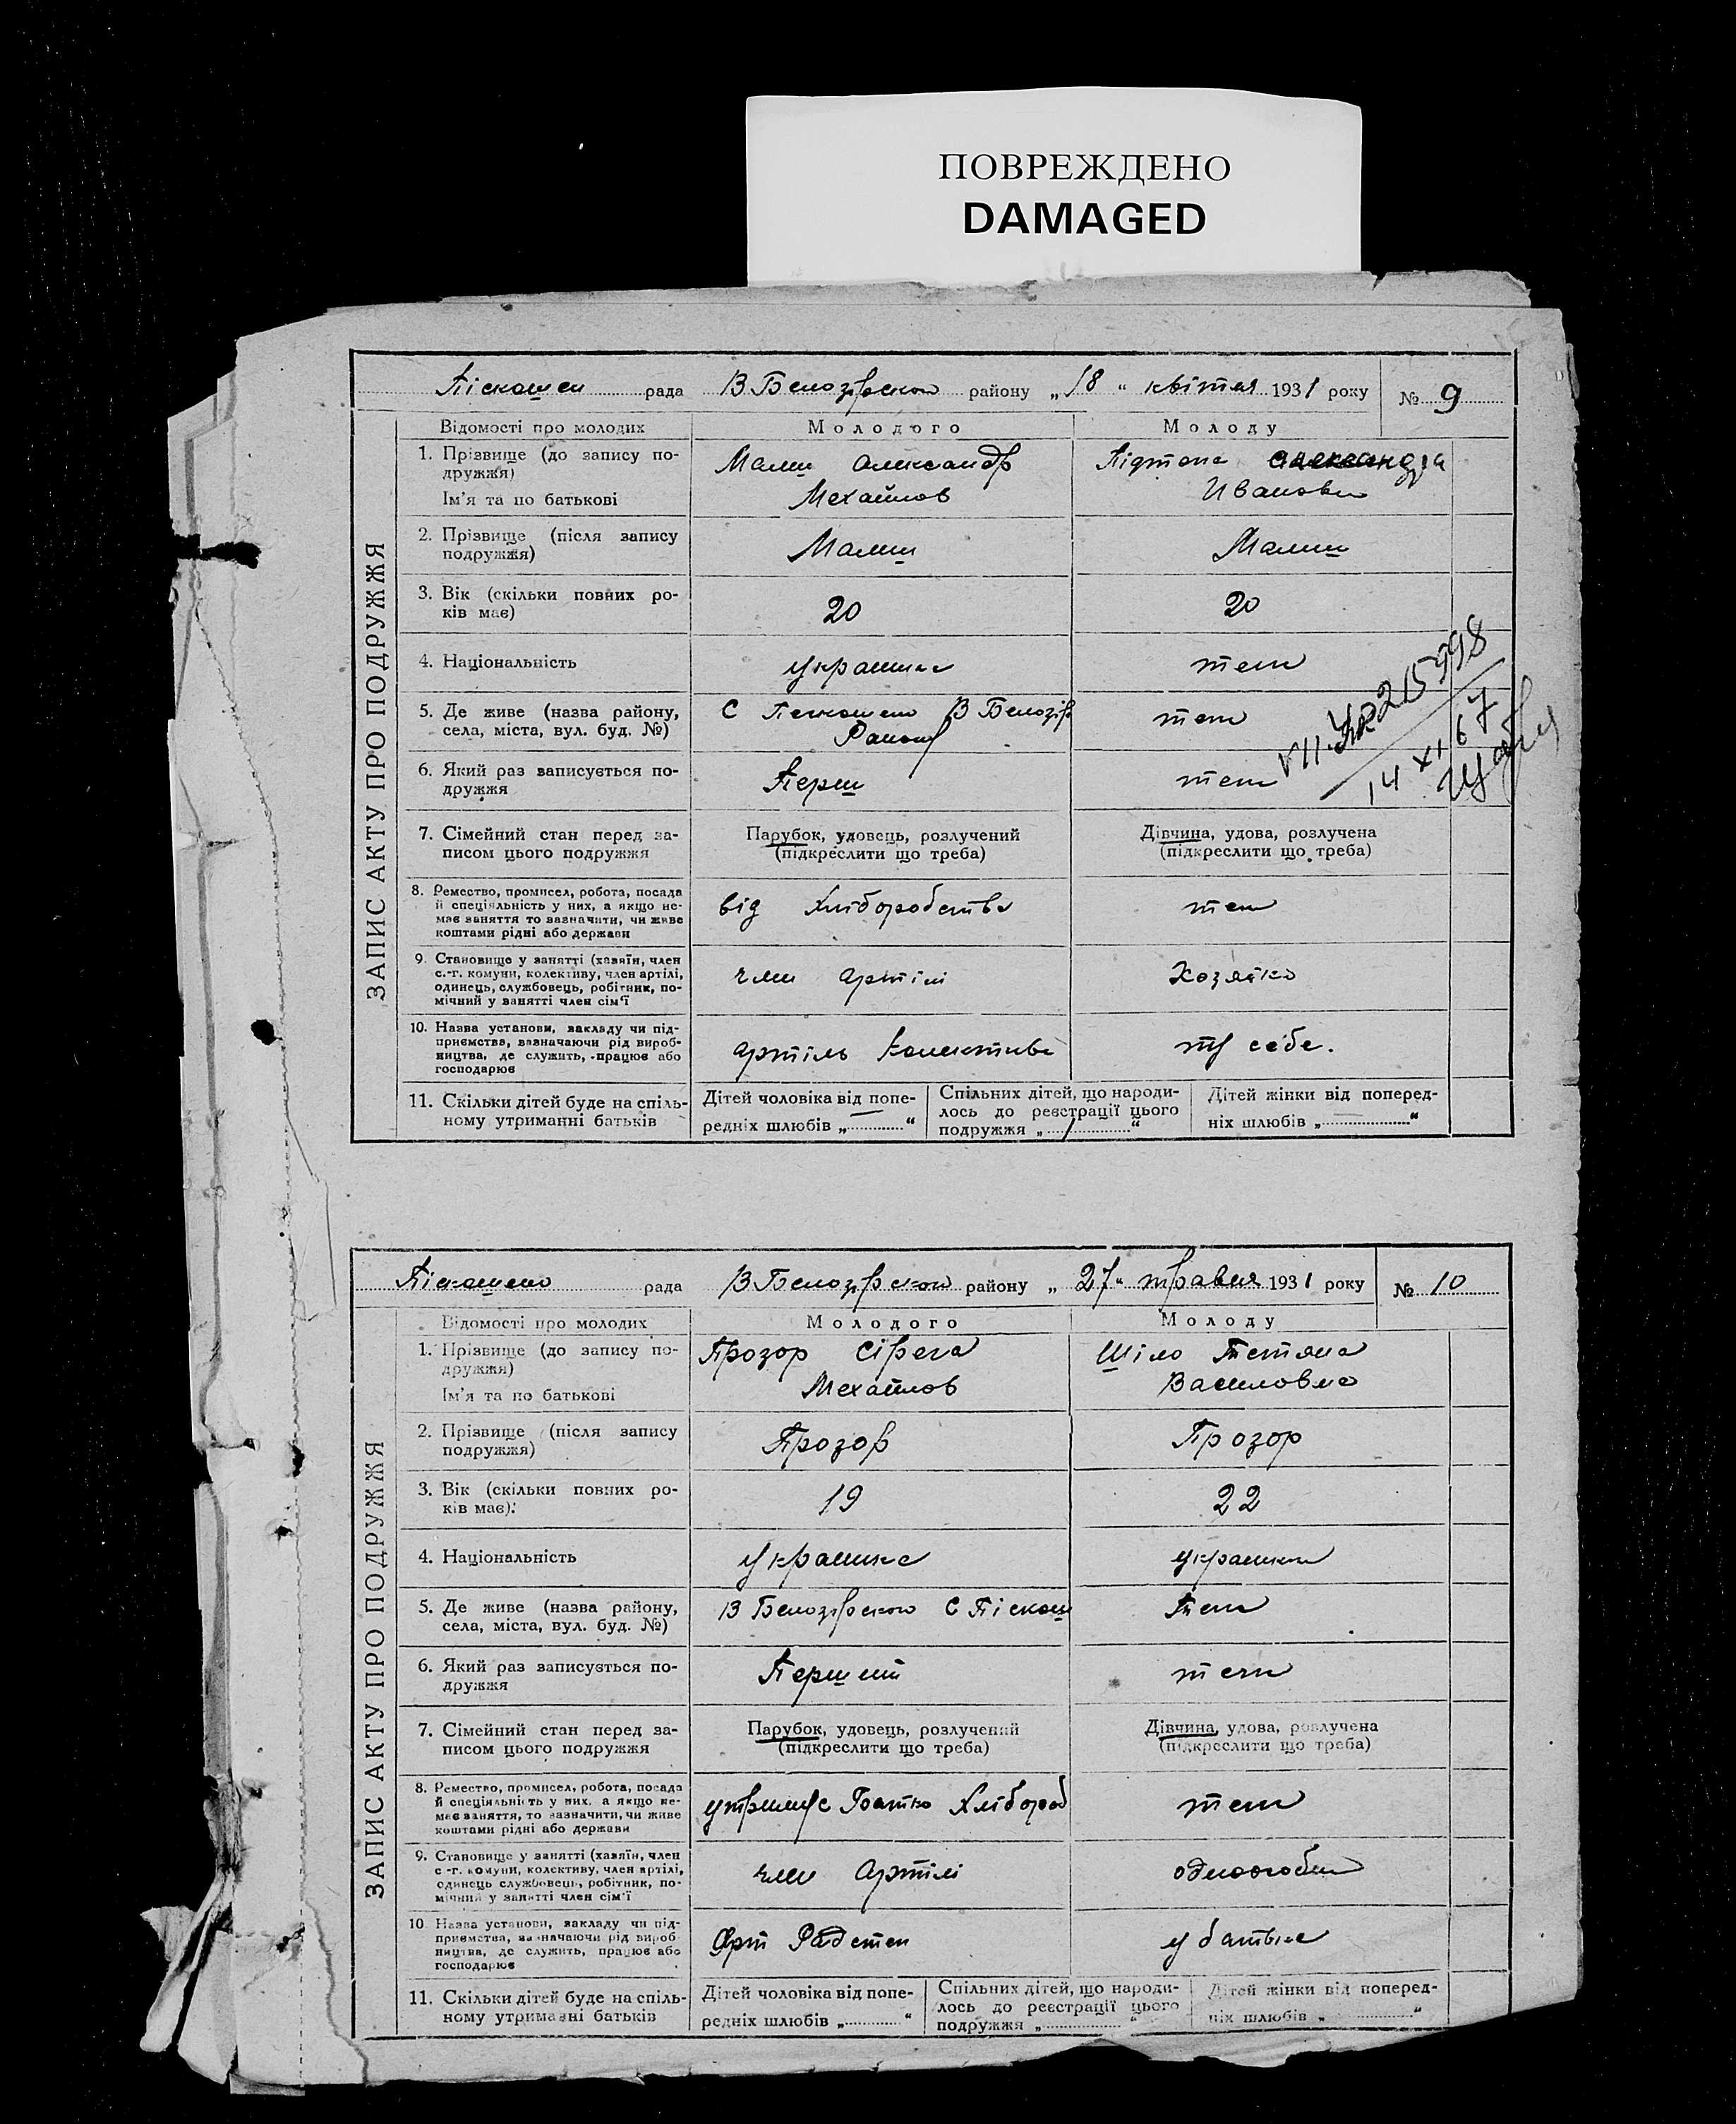 ПОВРЕЖДЕНО
DAMAGED
ЗАПИС АКТУ ПРО ПОДРУЖЖЯ
рада В Белозірском району „18“ квітня 1931 року № 9
Відомості про молодих Молодого Молоду
1. Прізвище (до запису по-
дружжя)
Ім'я та по батькові
Малиш Александр
Мехайлов
Александра
Ивановн
2. Прізвище (після запису
подружжя)
Малиш Малиш
3. Вік (скільки повних ро-
ків має)
20 20
4. Національність
теж
5. Де живе (назва району,
села, міста, вул. буд. №)
С В Белозір
Району
теж
6. Який раз записується по-
дружжя
Перш теж
14 XI 67
7. Сімейний стан перед за-
писом цього подружжя
Парубок, удовець, розлучений
(підкреслити що треба)
Дівчина, удова, розлучена
(підкреслити що треба)
8. Ремество, промисел, робота, посада
й спеціяльність у них, а якщо не-
має заняття то зазначити, чи живе
коштами рідні або держави
від Хліборобства теж
9. Становище у занятті (хазяїн, член
с.-г. комуни, колективу, член артілі,
одинець, службовець, робітник, по-
мічний у занятті член сім'ї
член артілі Хозяйка
10. Назва установи, закладу чи під-
приємства, зазначаючи рід вироб-
ництва, де служить, працює або
господарює
артіль себе.
11. Скільки дітей буде на спіль-
ному утриманні батьків
Дітей чоловіка від попе-
редніх шлюбів „ — “
Спільних дітей, що народи-
лось до реєстрації цього
подружжя „ / “
Дітей жінки від поперед-
ніх шлюбів „ — “
ЗАПИС АКТУ ПРО ПОДРУЖЖЯ
рада В Белозірском району „27“ травня 1931 року № 10
Відомості про молодих Молодого Молоду
1. Прізвище (до запису по-
дружжя)
Ім'я та по батькові
Прозор
Мехайлов
Шіло Тетяна
Василовна
2. Прізвище (після запису
подружжя)
Прозор Прозор
3. Вік (скільки повних ро-
ків має)
19 22
4. Національність
5. Де живе (назва району,
села, міста, вул. буд. №)
В Белозірском С Піскош теж
6. Який раз записується по-
дружжя
Перший теж
7. Сімейний стан перед за-
писом цього подружжя
Парубок, удовець, розлучений
(підкреслити що треба)
Дівчина, удова, розлучена
(підкреслити що треба)
8. Ремество, промисел, робота, посада
й спеціяльність у них, а якщо не-
має заняття, то зазначити, чи живе
коштами рідні або держави
Хлібороб теж
9. Становище у занятті (хазяїн, член
с.-г. комуни, колективу, член артілі,
одинець службовець, робітник, по-
мічний у занятті член сім'ї
член Артілі
10 Назва установи, закладу чи під-
приємства, зазначаючи рід вироб-
ництва, де служить, працює або
господарює
Арт у батька
11. Скільки дітей буде на спіль-
ному утриманні батьків
Дітей чоловіка від попе-
редніх шлюбів „ “
Спільних дітей, що народи-
лось до реєстрації цього
подружжя „ “
Дітей жінки від поперед-
ніх шлюбів „ “